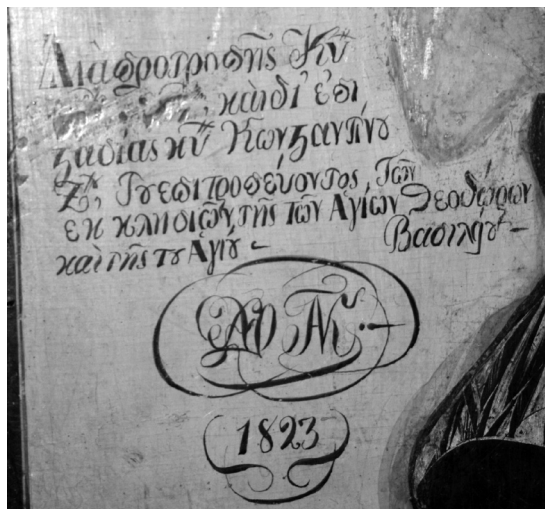 Διὰ προτροπῆς Κυ
καὶ δι' ἐπι
ςασίας κυ Κωνςαντίνου
Ζ, Του επιτροπεύοντος, Τῶν
εκ κλησιῶν, τῆς τῶν Αγίων Θεοδώρων
καὶ τῆς του Αγίου Βασιλείου
1823